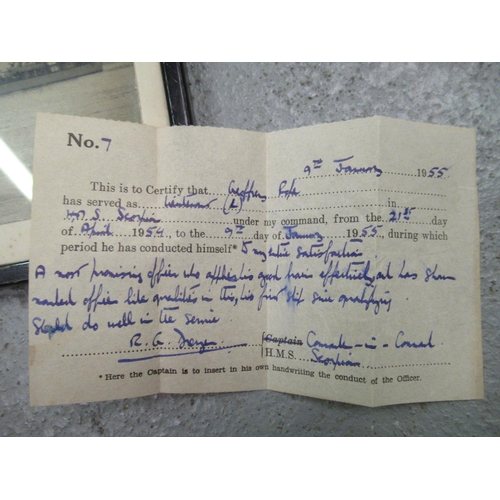 No. 7
9th January 1955
This is to Certify that Geoffrey
has served as Lieutenant (L) in
H.M.S. Scorpion under my command, from the 21st day
of April 1954, to the 9th day of January 1955, during which
period he has conducted himself* to my entire satisfaction
A most promising officer who applies his good brain effectively and has shown
marked officer like qualities in this, his first ship since qualifying
Should do well in the Service
R. G.
Captain in - Command
H.M.S. Scorpion
* Here the Captain is to insert in his own handwriting the conduct of the Officer.